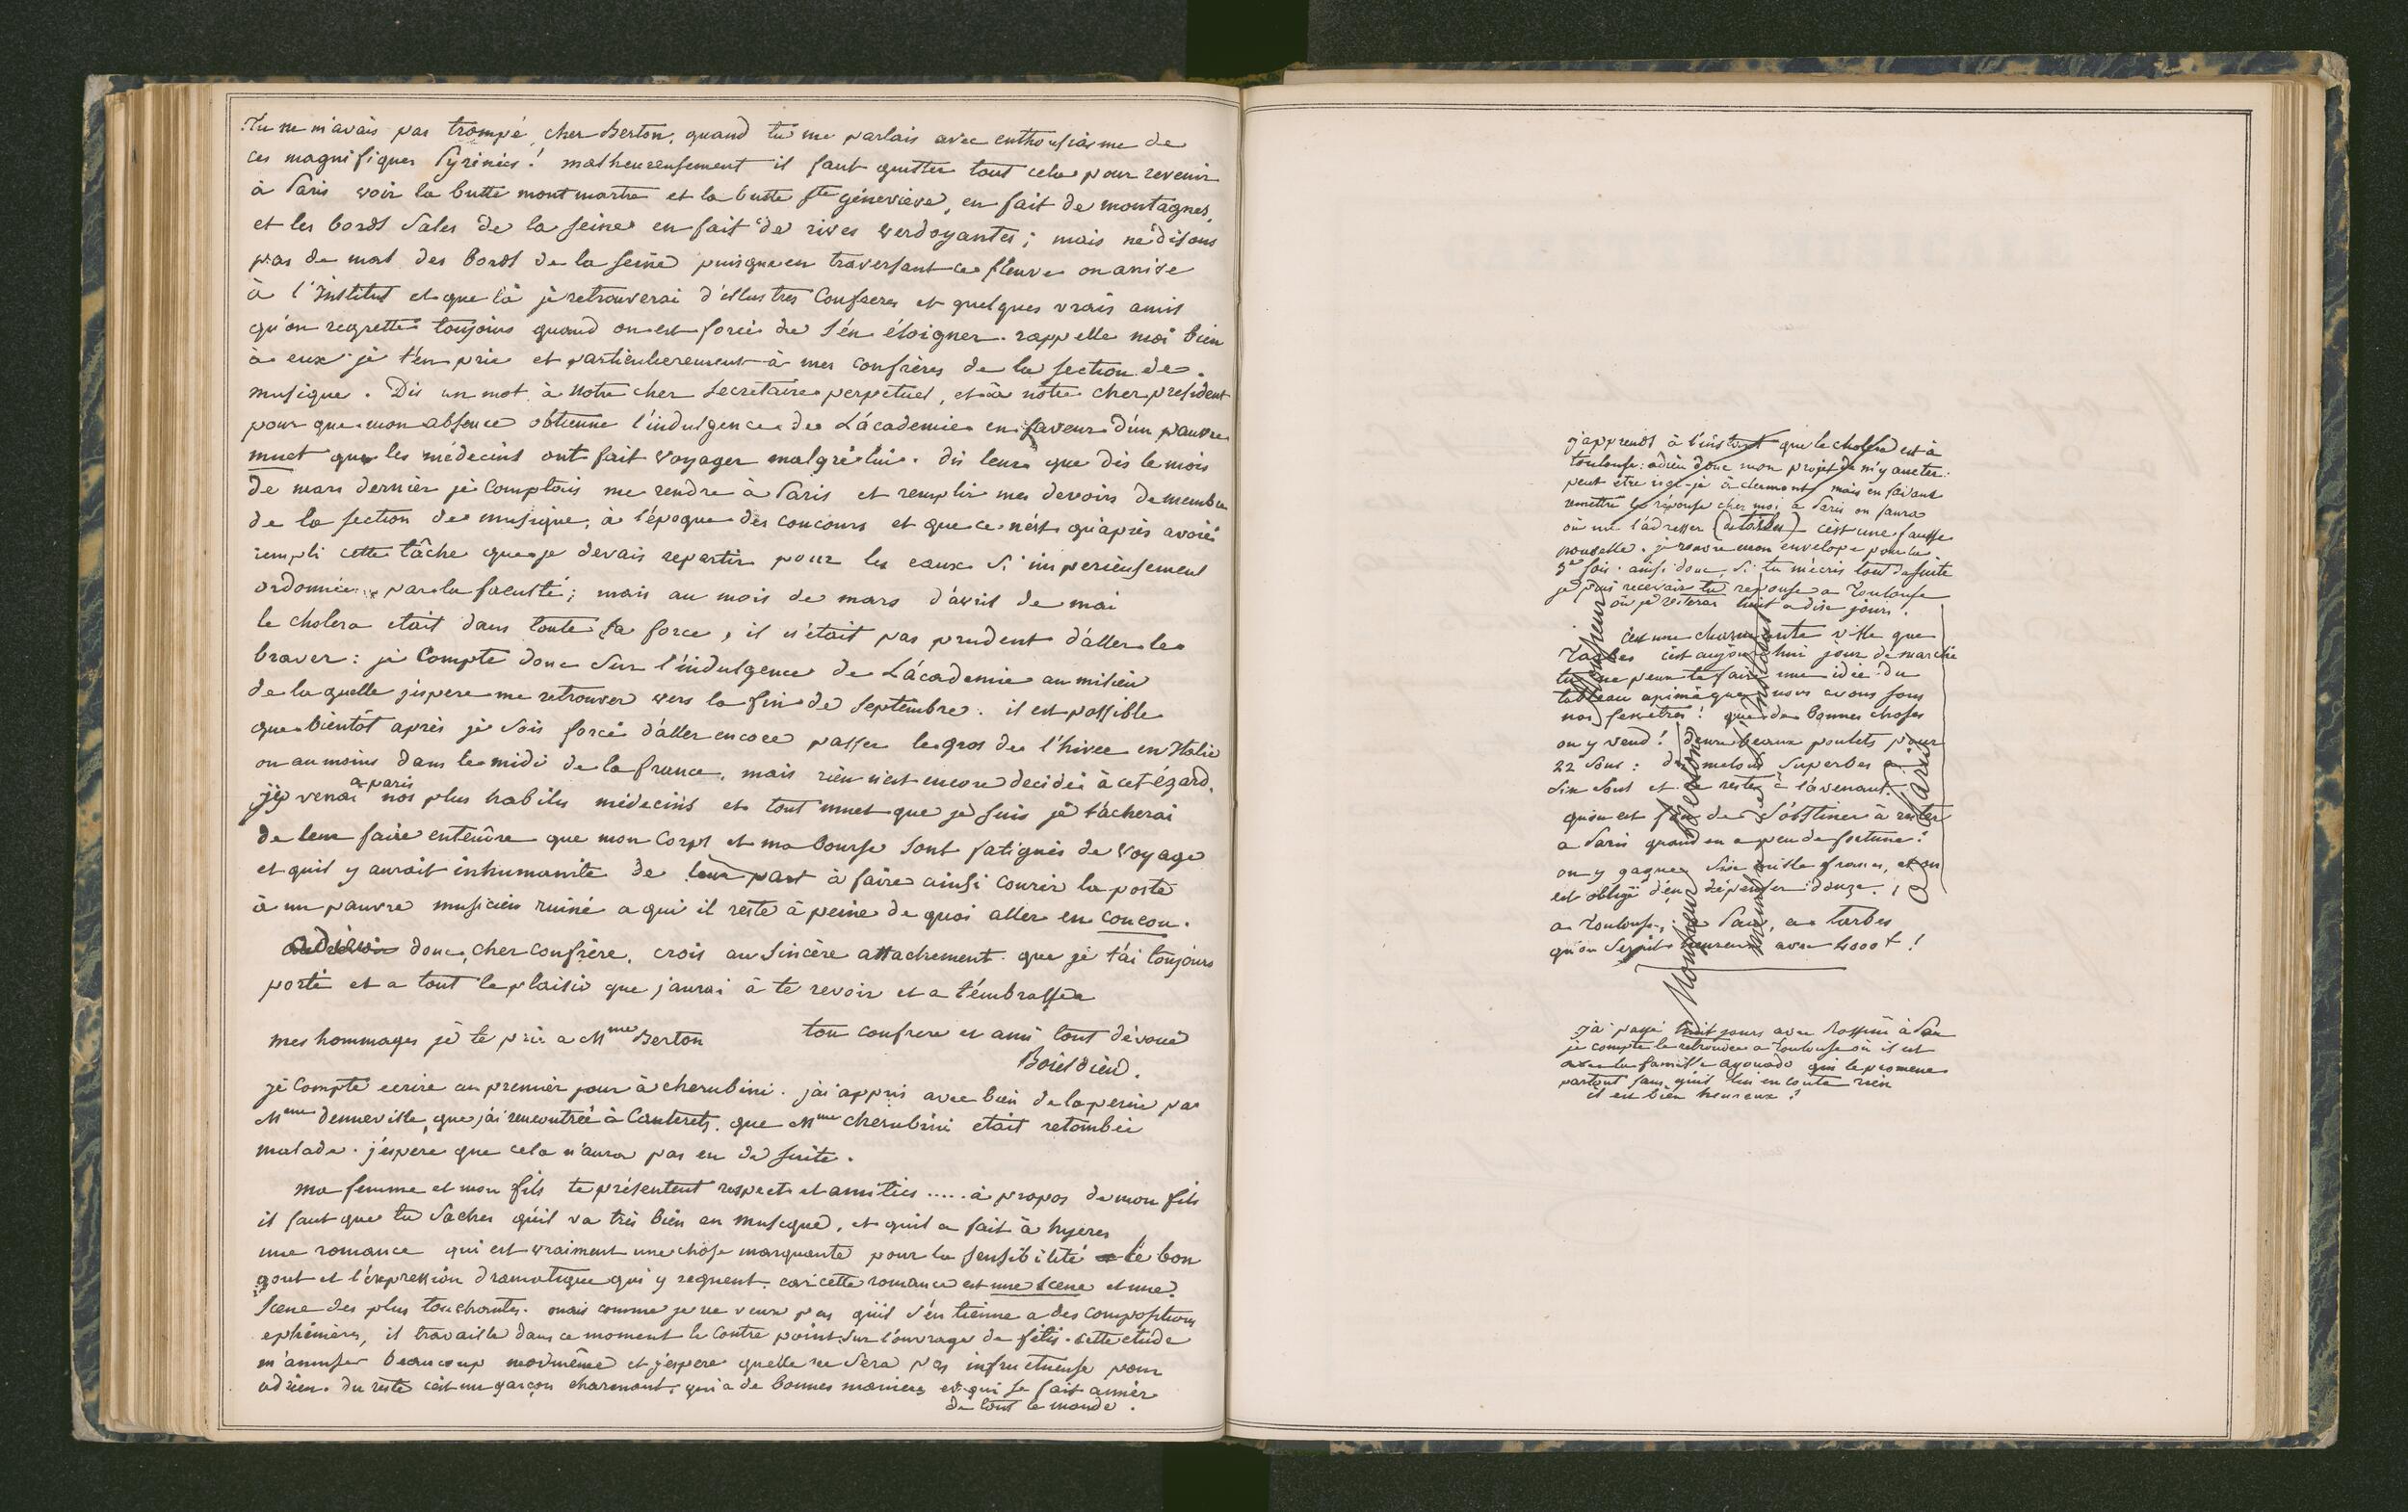 Tu ne m'avais pas trompé, cher Berton, quand tu me parlais avec enthousiasme de
ces magnifiques Pyrinées! malheureusement il faut quitter tout cela pour revenir
à Paris voir la butte montmartre et la butte Ste géneviève, en fait de montagnes,
et les bords sales de la seine en fait de rives verdoyantes; mais ne disons
pas de mal des bords de la seine puisqu'en traversant ce fleuve on arrive
à l'Institut et que là je retrouverai d'illustres Confreres et quelques vrais amis
qu'on regrette toujours quand on est forcé de s'én éloigner. rappelle moi bien
à eux je t'en prie et particulierement à mes confrères de la section de
musique. Dis un mot à notre cher secretaire perpetuel, et à notre cher president
pour que mon absence obtienne l'indulgence de L'académie en faveur d'un pauvre
muet que les médecins ont fait voyager malgré lui. dis leur que dès le mois
de mars dernier je comptais me rendre à Paris et remplir mes devoirs de membre
de la section de musique, à l'époque des concours et que ce n'est qu'après avoir
rempli cette tâche que je devais repartir pour les eaux si imperieusement
ordonnées par la faculté; mais au mois de mars d'avril de mai
le cholera etait dans toute sa force, il n'était pas prudent d'aller le
braver: je Compte donc sur l'indulgence de L'académie au milieu
de laquelle j'espere me retrouver vers la fin de septembre. il est possible
que bientôt après je sois forcé d'aller encore passer le gros de l'hiver en Italie
ou au moins dans le midi de la france. mais rien n'est encore decidé à cet égard.
je verrai a paris nos plus habiles médecins et tout muet que je suis je tâcherai
de leur faire entendre que mon Corps et ma bourse sont fatigués de voyage
et quil y aurait inhumanité de leur part à faire ainsi courir la poste
à un pauvre musicien ruiné a qui il reste à peine de quoi aller en coucou.
adieu donc, cher confrère, crois au sincère attachement que je t'ai toujours
porté et a tout le plaisir que j'aurai à te revoir et a t'embrasser
mes hommages je te prie a Mme Berton
ton confrere et ami tout dévoué
Boieldieu.
je compte ecrire au premier jour à cherubini. j'ai appris avec bien de la peine par
Mme denneville, que j'ai rencontrée à Cauterets, que Mme cherubini etait retombée
malade. j'espere que cela n'aura pas eu de suite.
ma femme et mon fils te présentent respects et amitiés ..... à propos de mon fils
il faut que tu saches qu'il va très bien en musique, et quil a fait à hyeres
une romance qui est vraiment une chose marquante pour la sensibilité le bon
gout et l'expression dramatique qui y regnent. car cette romance est une scene et une
scene des plus touchantes. mais comme je ne veux pas qu'il s'en tienne a des compositions
ephémères, il travaille dans ce moment le Contre point sur l'ouvrage de fétis. cette etude
m'amuse beaucoup moi même et j'espere quelle ne sera pas infructueuse pour
adrien. du reste c'est un garçon charmant, qui a de bonnes manieres et qui se fait aimer
de tout le monde.
j'apprends à l'instant que le choléra est à
toulouse: adieu donc mon projet de m'y arreter.
peut être irai-je à clermont, mais en faisant
remettre la réponse chez moi à Paris on saura
où me l'adresser (de tarbes) c'est une fausse
nouvelle. je rouvre mon envelope pour la
3e fois. ainsi donc, si tu m'écris tout de suite
je puis recevoir ta reponse a Toulouse
où je resterai huit a dix jours.
c'est une charmante ville que
Tarbes c'est aujourd'hui jour de marché
tu ne peux te faire une idée du
tableau animé que nous avons sous
nos fenêtres! que de bonnes choses
on y vend! deux beaux poulets pour
22 sous: des melons superbes a
six sous et le reste à l'avenant.
qu'on est fou de s'obstiner à rester
a Paris quand on a peu de fortune!
on y gagne six mille francs, et on
est obligé d'en dépenser douze.
a Toulouse, a Pau, a tarbes
qu'on serait heureux avec 4000 f!
Monsieur
Monsieur Berton
membre de l'institut
a Paris
j'ai passé huit jours avec Rossini à Pau
je compte le retrouver a Toulouse où il est
avec la famille aguado qui le promene
partout sans qu'il lui en coute rien
il est bien heureux!